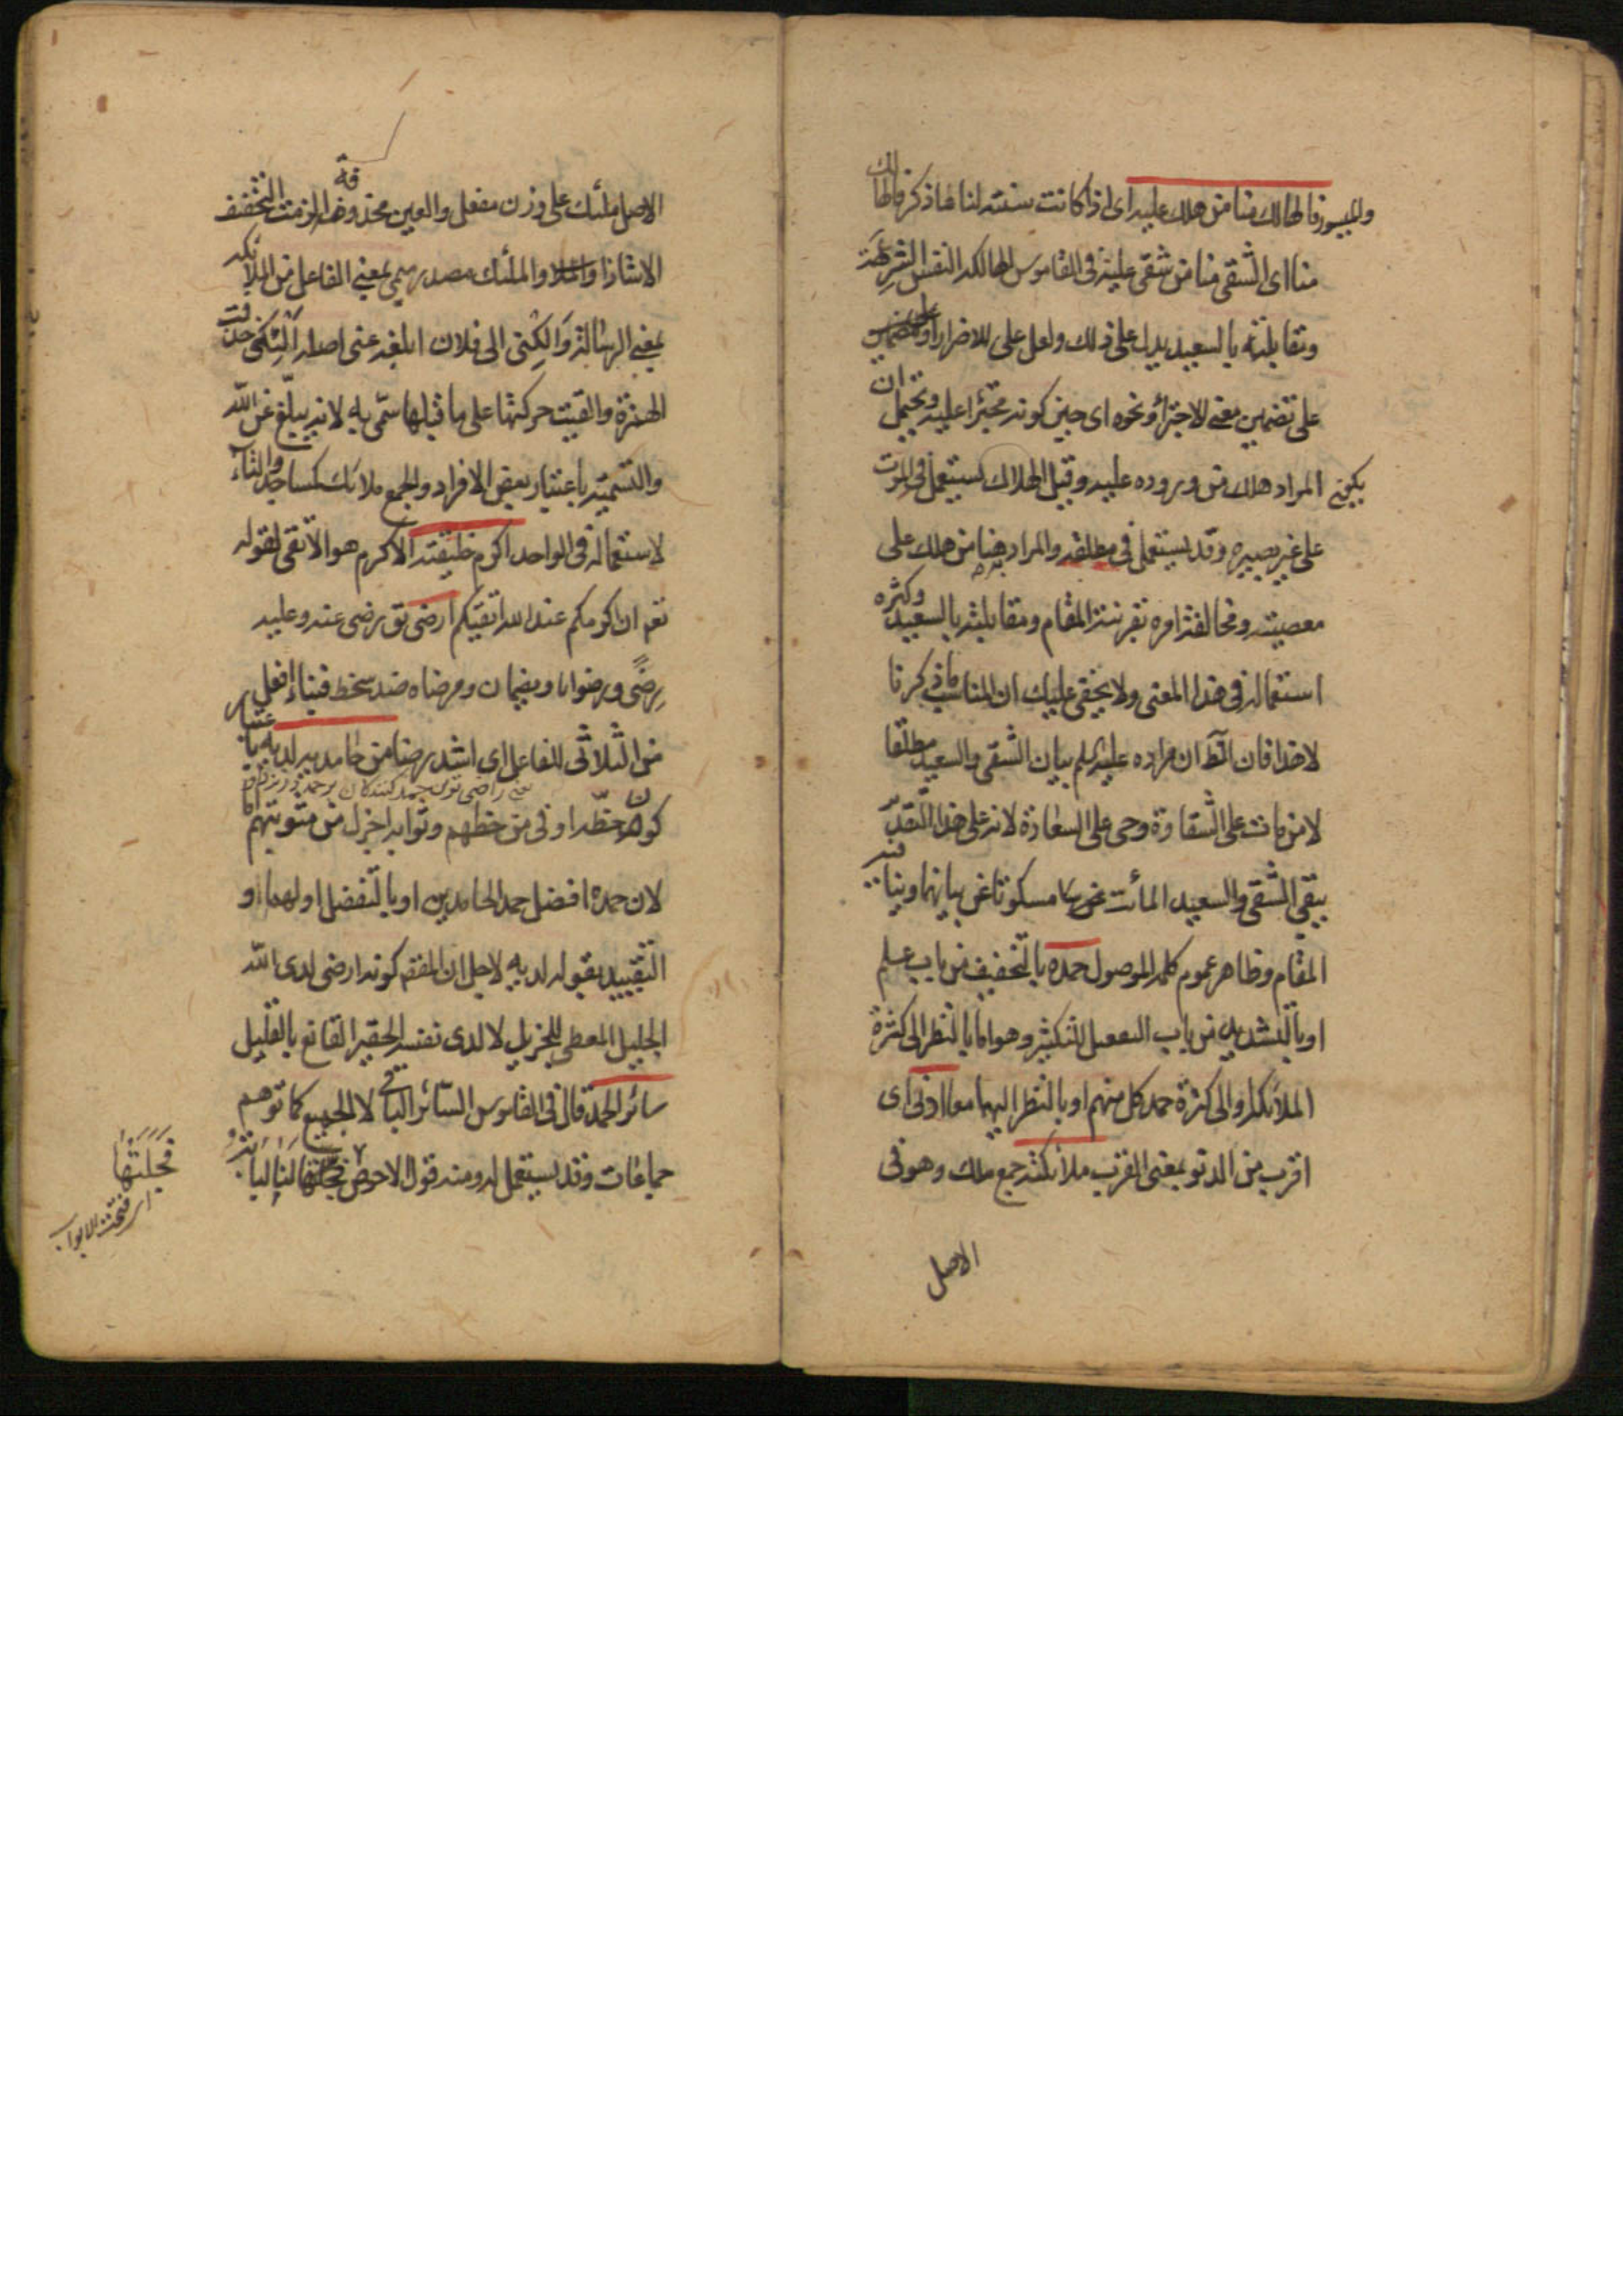 والميسور فالهالك منا من هلك عليه اى اذا كانت سنته لنا هاذكر فالهالك
منا اى الشقى منا من شقى عليه فى القاموس الهالكه النفس الشرهة
ومقابلته بالسعيد يدل على ذلك ولعل على للاضرار او
على تضمين معنى الاجتراء ونحوه اى حين كونه مجترا عليه ويحتمل ان
يكون المراد هلك من وروده عليه وقيل الهلاك يستعمل فى الموت
على غير بصيرة وقد يستعمل فى مطلقه والمراد هنا من هلك على
معصيته ومخالفة امره بقرينة المقام ومقابلته بالسعيد وكثره
استعماله فى هذا المعنى ولا يخفى عليك ان المناسب ما ذكرنا
لا هذا فان الظ ان مراده عليه السلم بيان الشقى والسعيد مطلقا
لا من مات على الشقاوة وحى على السعادة لانه على هذا التقدير
يبقى الشقى والسعيد المأت مسكوتا عن بيانهما وينافيه
المقام وظاهر عموم كلمه الموصول حمده بالتخفيف من باب علم
او بالتشديد من باب التفعيل للتكثير وهو اما بالنظر الى كثرة
الملائكه او الى كثرة حمد كل منهم او بالنظر اليهما معا ادنى اى
اقرب من الدنو بمعنى القرب ملائكته جمع ملك وهو فى
الاصل
الاصل ملئك على وزن مفعل والعين محذوفة الزمت التخفيف
الا شاذا والملئك مصدر ميمى بمعنى الفاعل من الملائكه
بمعنى الرسالة وَالِكْنى الى فلان ابلغه عنى اصله اَلْئِكْنى حذفت
الهمزة والقيت حركتها على ما قبلها سمى به لانه يبلغ عن الله
والتسمية باعتبار بعض الافراد والجمع ملائك كمساجد والتاء
لاستعماله فى الواحد اكرم خليقته الاكرم هو الاتقى لقوله
تعم ان اكرمكم عند الله اتقيكم ارضى تق رضى عنه وعليه
رِضًى ورضوانا ويضمان ومرضاه ضد سخط فبناء افعل
من الثلاثى للفاعل اى اشد رضا من حامديه لديه باعتبار
كون حظه اوفى من حظهم وثوابه اجزل من مثوبتهم
لان حمده افضل حمد الحامدين او بالتفضل اولهما او
التقييد بقوله لديه لاجل ان المقصم كونه ارضى لدى الله
الجليل المعطى للجزيل لا لدى نفسه الحقير القانع بالقليل
سائر الحمد قال فى القاموس السائر الباقى لا الجميع كما توهم
جماعات وقد يستعمل له ومنه قول الاحوص فجلتها لنا لبابة
فَجَلَتْهَا
اى فتحت الابواب